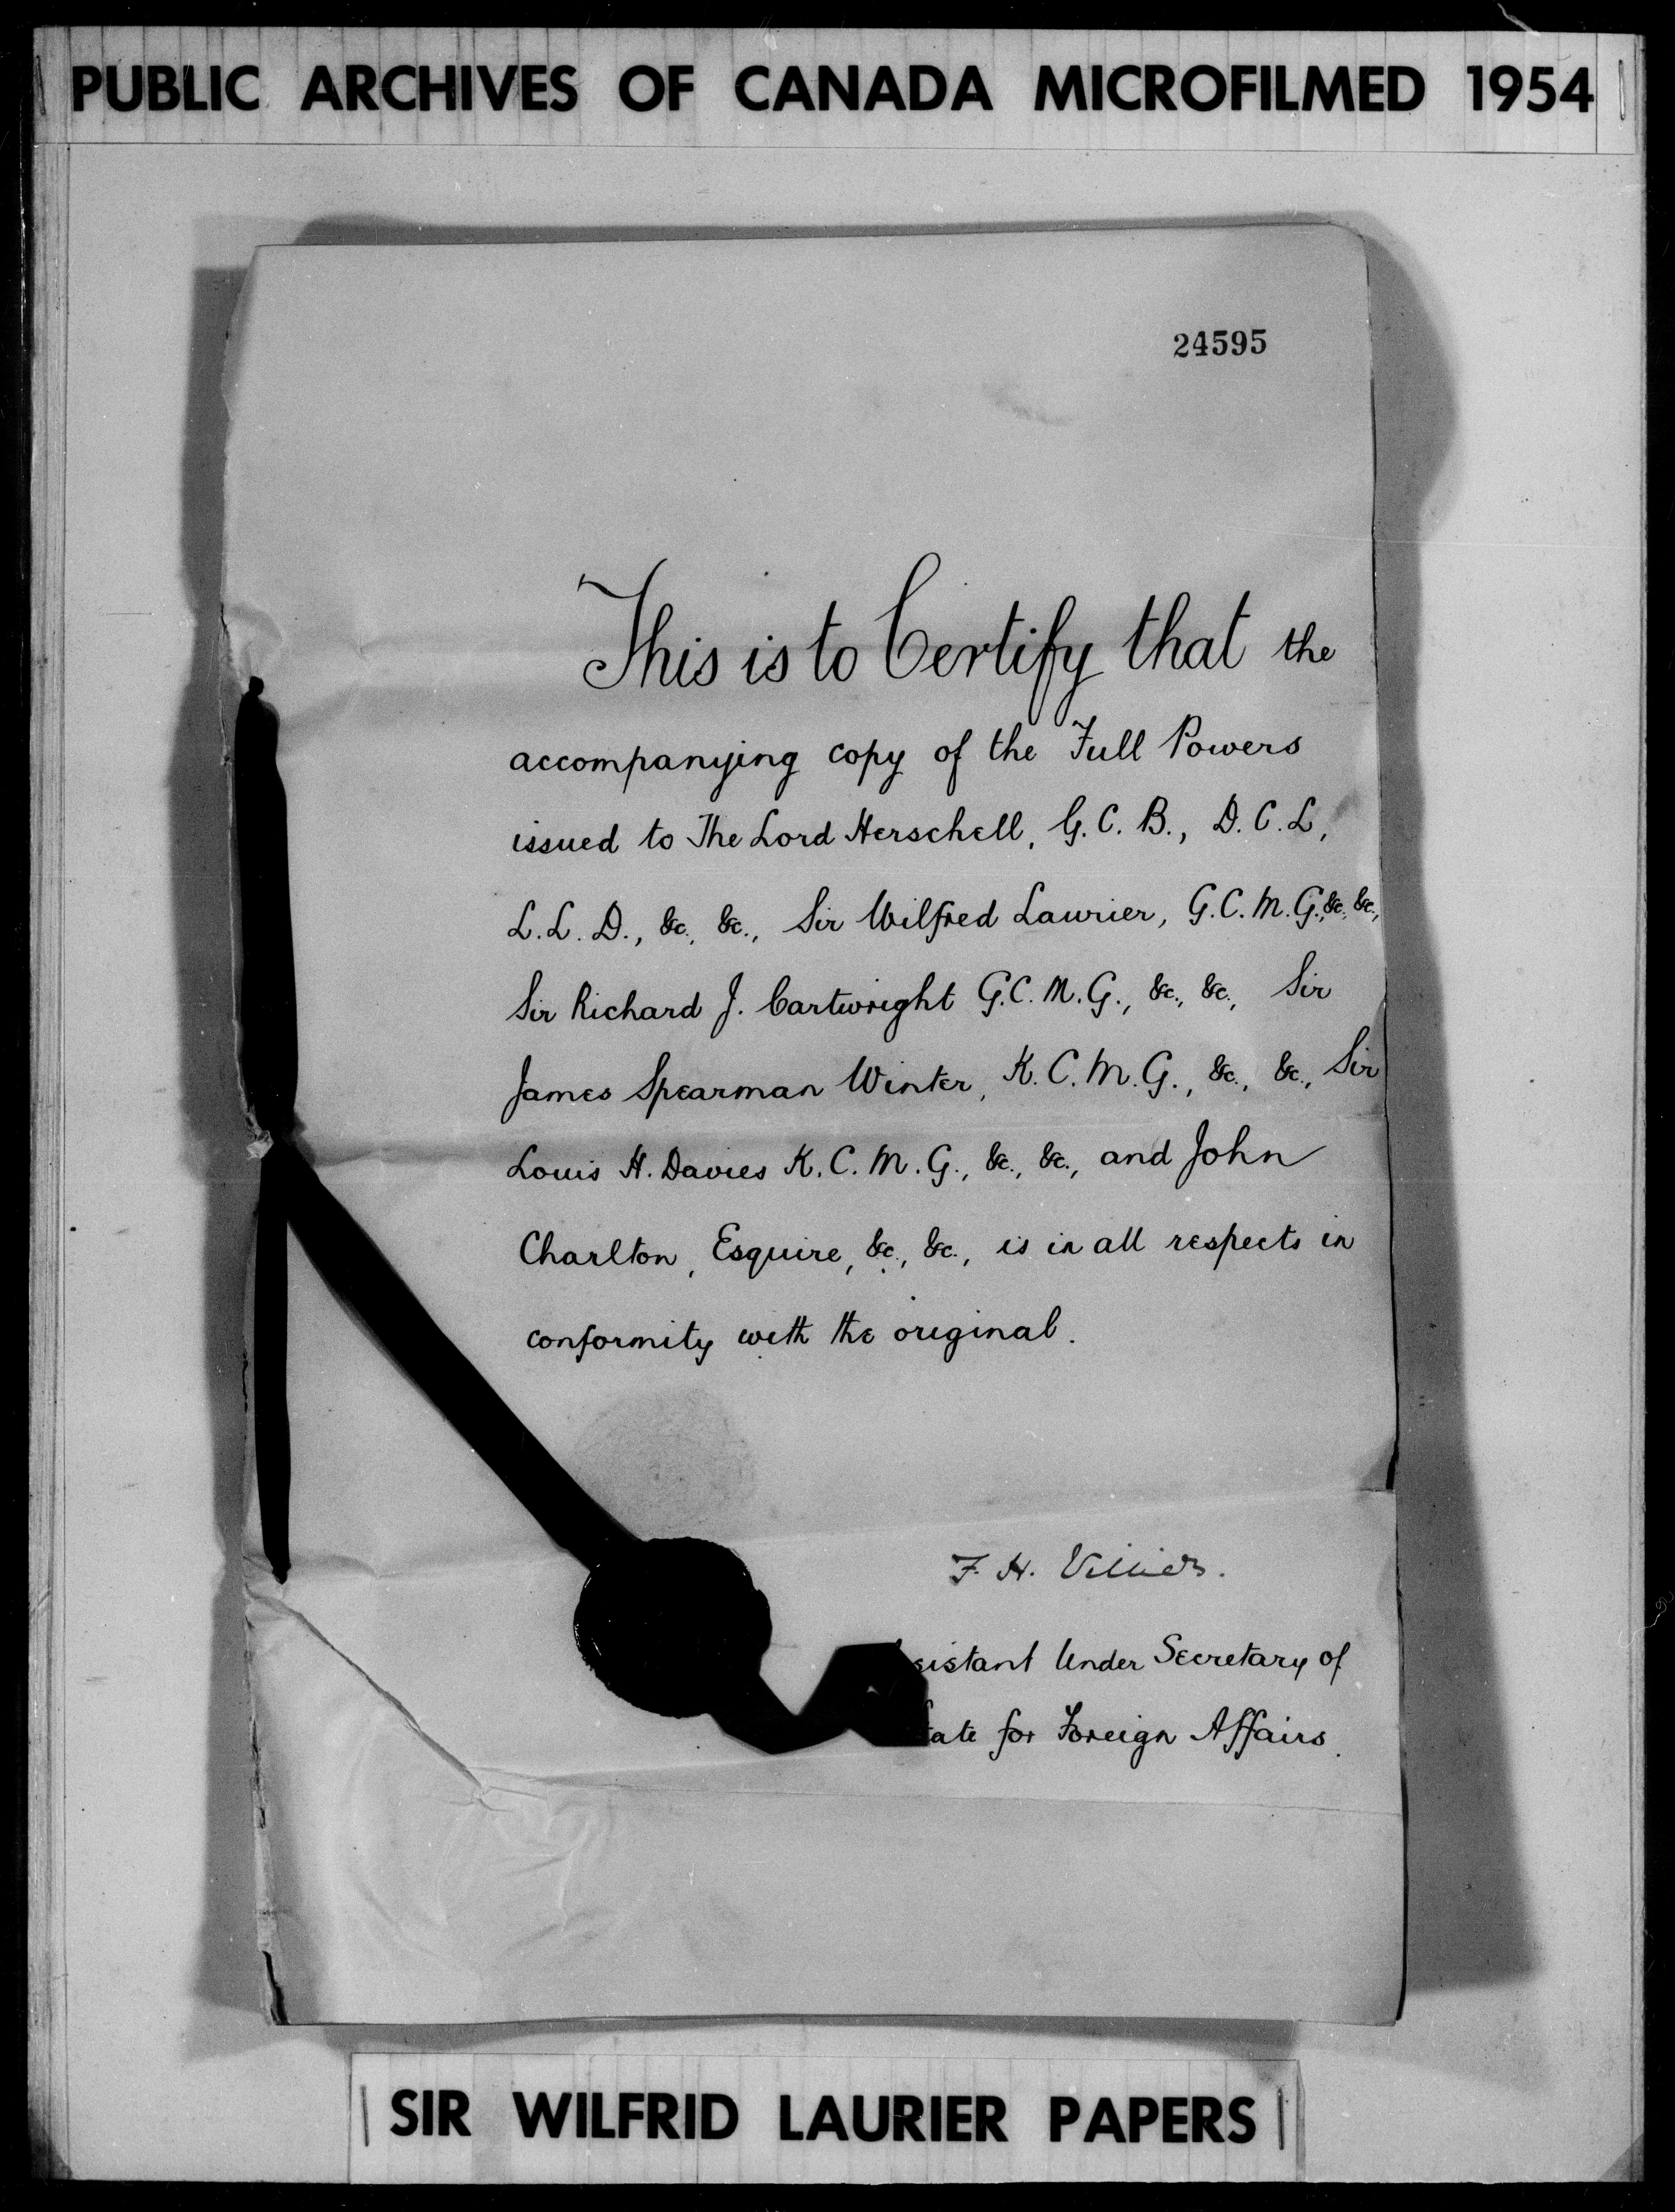 PUBLIC ARCHIVES OF CANADA MICROFILMED 1954
24595
This is to Certify that the
accompanying copy of the Full Powers
issued to The Lord Herschell, G.C.B., D.C.L,
L.L.D., &c., &c., Sir Wilfred Laurier, G.C.M.G., &c., &c.,
Sir Richard J. Cartwright G.C.M.G., &c., &c., Sir
James Spearman Winter, K.C.M.G., &c., &c., Sir
Louis H. Davies K.C.M.G., &c., &c., and John
Charlton, Esquire, &c., &c., is in all respects in
conformity with the original.
F. H. Villiers.
sistant Under Secretary of
tate for Foreign Affairs.
SIR WILFRID LAURIER PAPERS